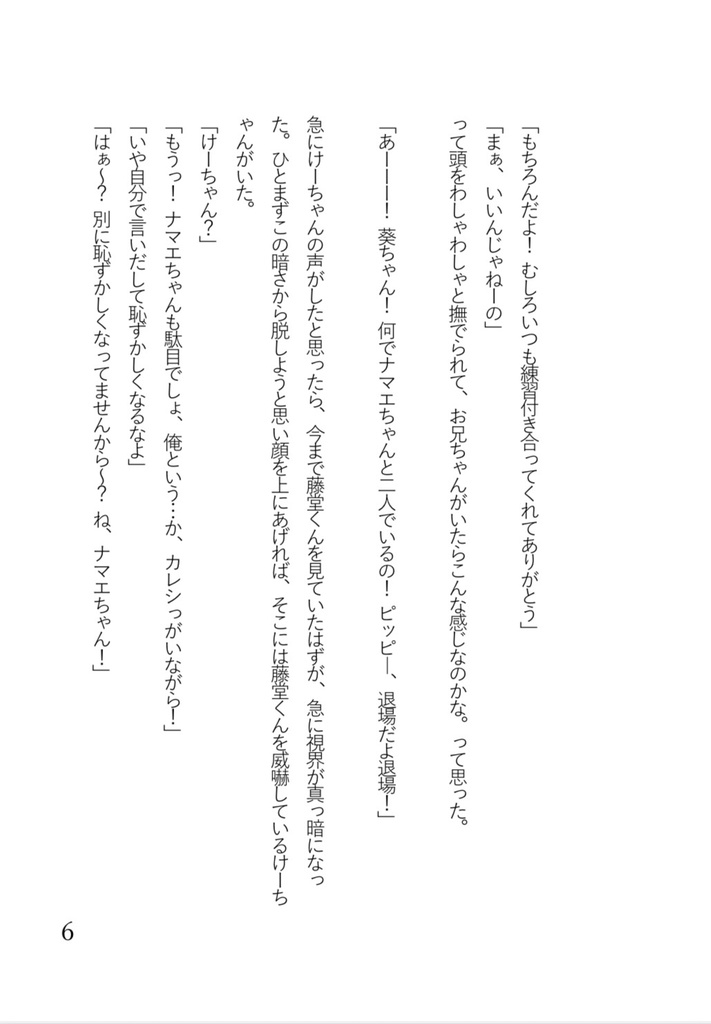 「もちろんだよ！ むしろいつも練習付き合ってくれてありがとう」
「まぁ、いいんじゃねーの」
って頭をわしゃわしゃと撫でられて、お兄ちゃんがいたらこんな感じなのかな。って思った。
「あーーー！ 葵ちゃん！ 何でナマエちゃんと二人でいるの！ ピッピー、退場だよ退場！」
急にけーちゃんの声がしたと思ったら、今まで藤堂くんを見ていたはずが、急に視界が真っ暗になっ
た。ひとまずこの暗さから脱しようと思い顔を上にあげれば、そこには藤堂くんを威嚇しているけーち
ゃんがいた。
「けーちゃん？」
「もうっ！ ナマエちゃんも駄目でしょ、俺という…か、カレシっがいながら！」
「いや自分で言いだして恥ずかしくなるなよ」
「はぁ～？ 別に恥ずかしくなってませんから～？ ね、ナマエちゃん！」
6